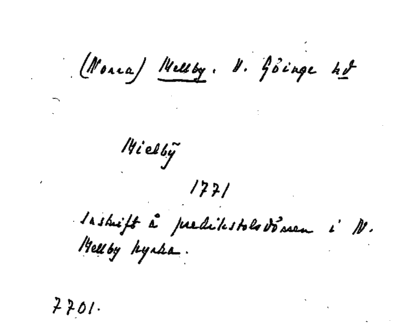 (Norra) Mellby. V. Göinge hd
Mielbÿ
1771
Inskrift å predikstolsdörren i N.
Mellby kyrka.
7701.